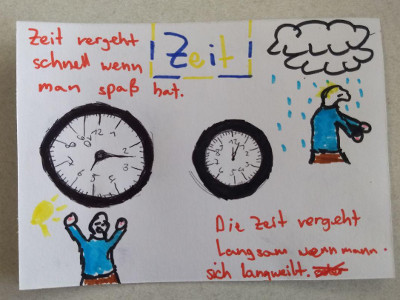 Zeit
Zeit vergeht
schnell wenn
man spaß hat.
Die Zeit vergeht
Langsam wenn mann.
sich langweilt.